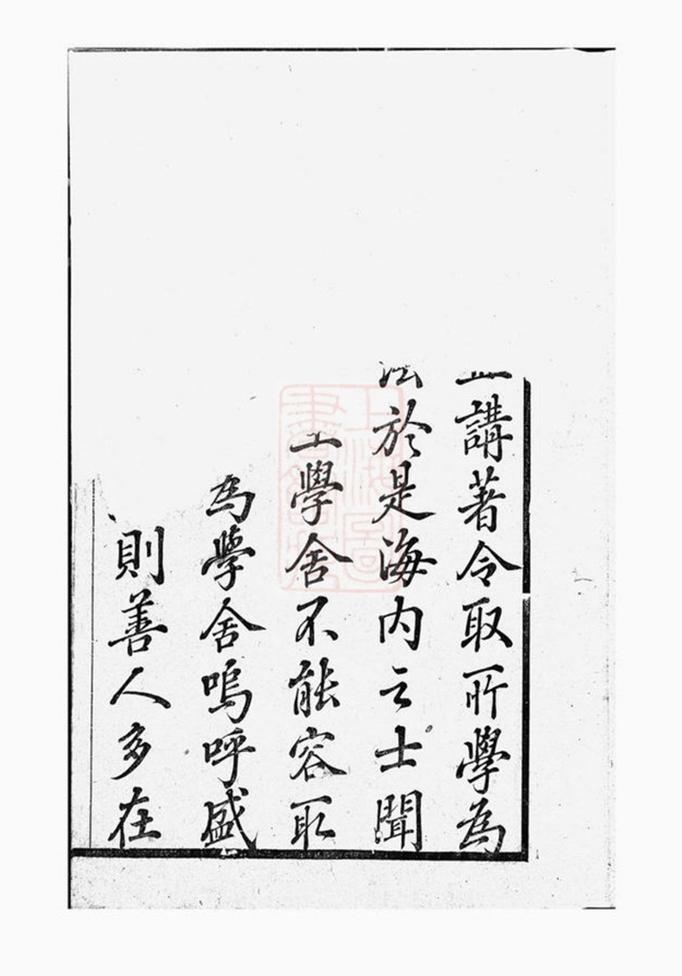 講著令取所學為
於是海内之士聞
學舍不能容取
為學舍嗚呼盛
則善人多在
上海圖
書館藏